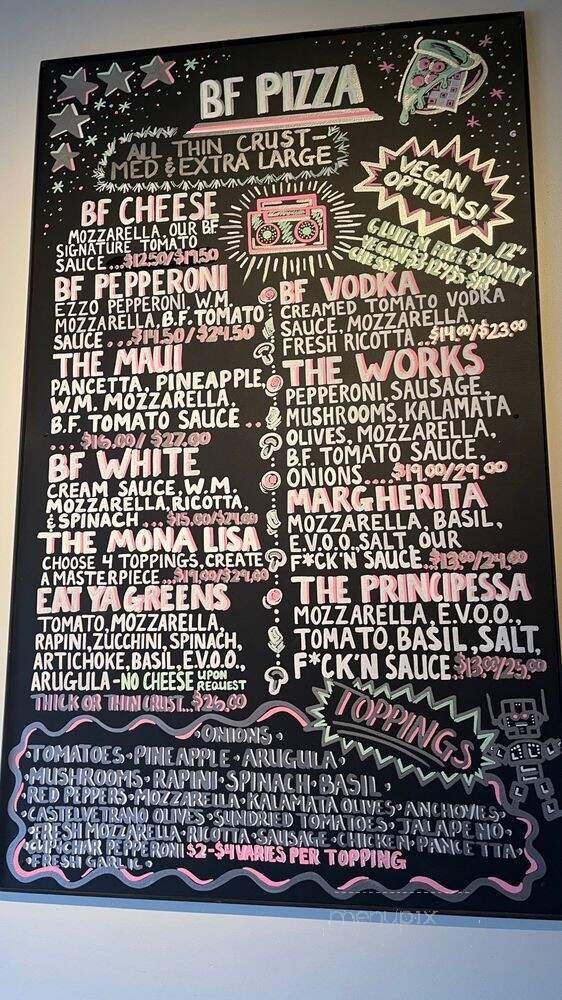 BF PIZZA
ALL THIN CRUST-
MED & EXTRA LARGE
VEGAN
OPTIONS!
12"
GLUTEN FREE $3 ONLY
VEGAN $3 12"/$5 18"
CHEESE
BF CHEESE
MOZZARELLA, OUR BF
SIGNATURE TOMATO
SAUCE...$12.50/$19.50
BF PEPPERONI
EZZO PEPPERONI, W.M.
MOZZARELLA, B.F. TOMATO
SAUCE ...$14.50/$24.50
THE MAUI
PANCETTA, PINEAPPLE,
W.M. MOZZARELLA,
B.F. TOMATO SAUCE ..
... $16.00/ $27.00
BF WHITE
CREAM SAUCE, W.M.
MOZZARELLA, RICOTTA,
& SPINACH ...$15.00/$24.00
THE MONA LISA
CHOOSE 4 TOPPINGS, CREATE
A MASTERPIECE...$19.00/$29.00
EAT YA GREENS
TOMATO, MOZZARELLA,
RAPINI, ZUCCHINI, SPINACH,
ARTICHOKE, BASIL, E.V.O.O.,
ARUGULA-NO CHEESE UPON REQUEST
THICK OR THIN CRUST...$26.00
BF VODKA
CREAMED TOMATO VODKA
SAUCE, MOZZARELLA,
FRESH RICOTTA...$14.00/$23.00
THE WORKS
PEPPERONI, SAUSAGE,
MUSHROOMS, KALAMATA
OLIVES, MOZZARELLA,
B.F. TOMATO SAUCE,
ONIONS....$19.00/29.00
MARGHERITA
MOZZARELLA, BASIL,
E.V.O.O., SALT, OUR
F*CK'N SAUCE.$13.00/24.00
THE PRINCIPESSA
MOZZARELLA, E.V.O.O.,
TOMATO, BASIL, SALT,
F*CK'N SAUCE $13.00/25.00
TOPPINGS
ONIONS •
•TOMATOES•PINEAPPLE•ARUGULA•
•MUSHROOMS•RAPINI•SPINACH•BASIL•
RED PEPPERS•MOZZARELLA•KALAMATA OLIVES•ANCHOVIES•
CASTELVETRANO OLIVES•SUNDRIED TOMATOES•JALAPENO•
•FRESH MOZZARELLA•RICOTTA•SAUSAGE•CHICKEN•PANCETTA•
CUP&CHAR PEPPERONI $2-$4 VARIES PER TOPPING
•FRESH GARLIC•
menupix